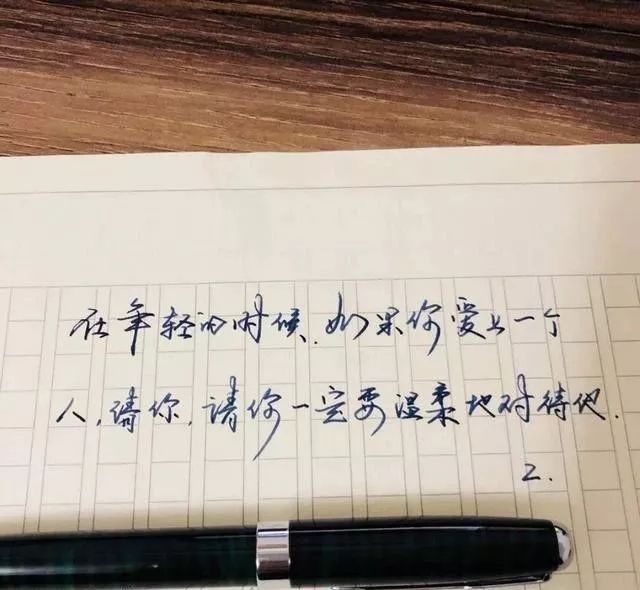 在年轻的时候，如果你爱上一个
人，请你，请你一定要温柔地对待他.
2.